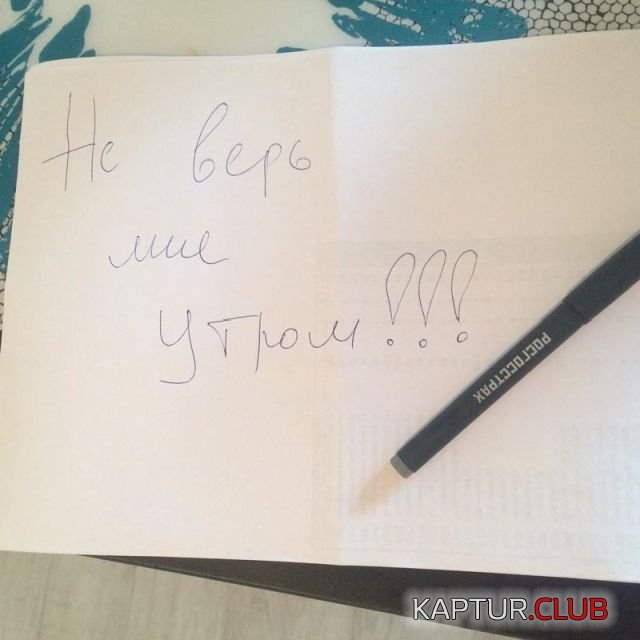 Не верь
мне
утром!!!
РОСГОССТРАХ
KAPTUR.CLUB